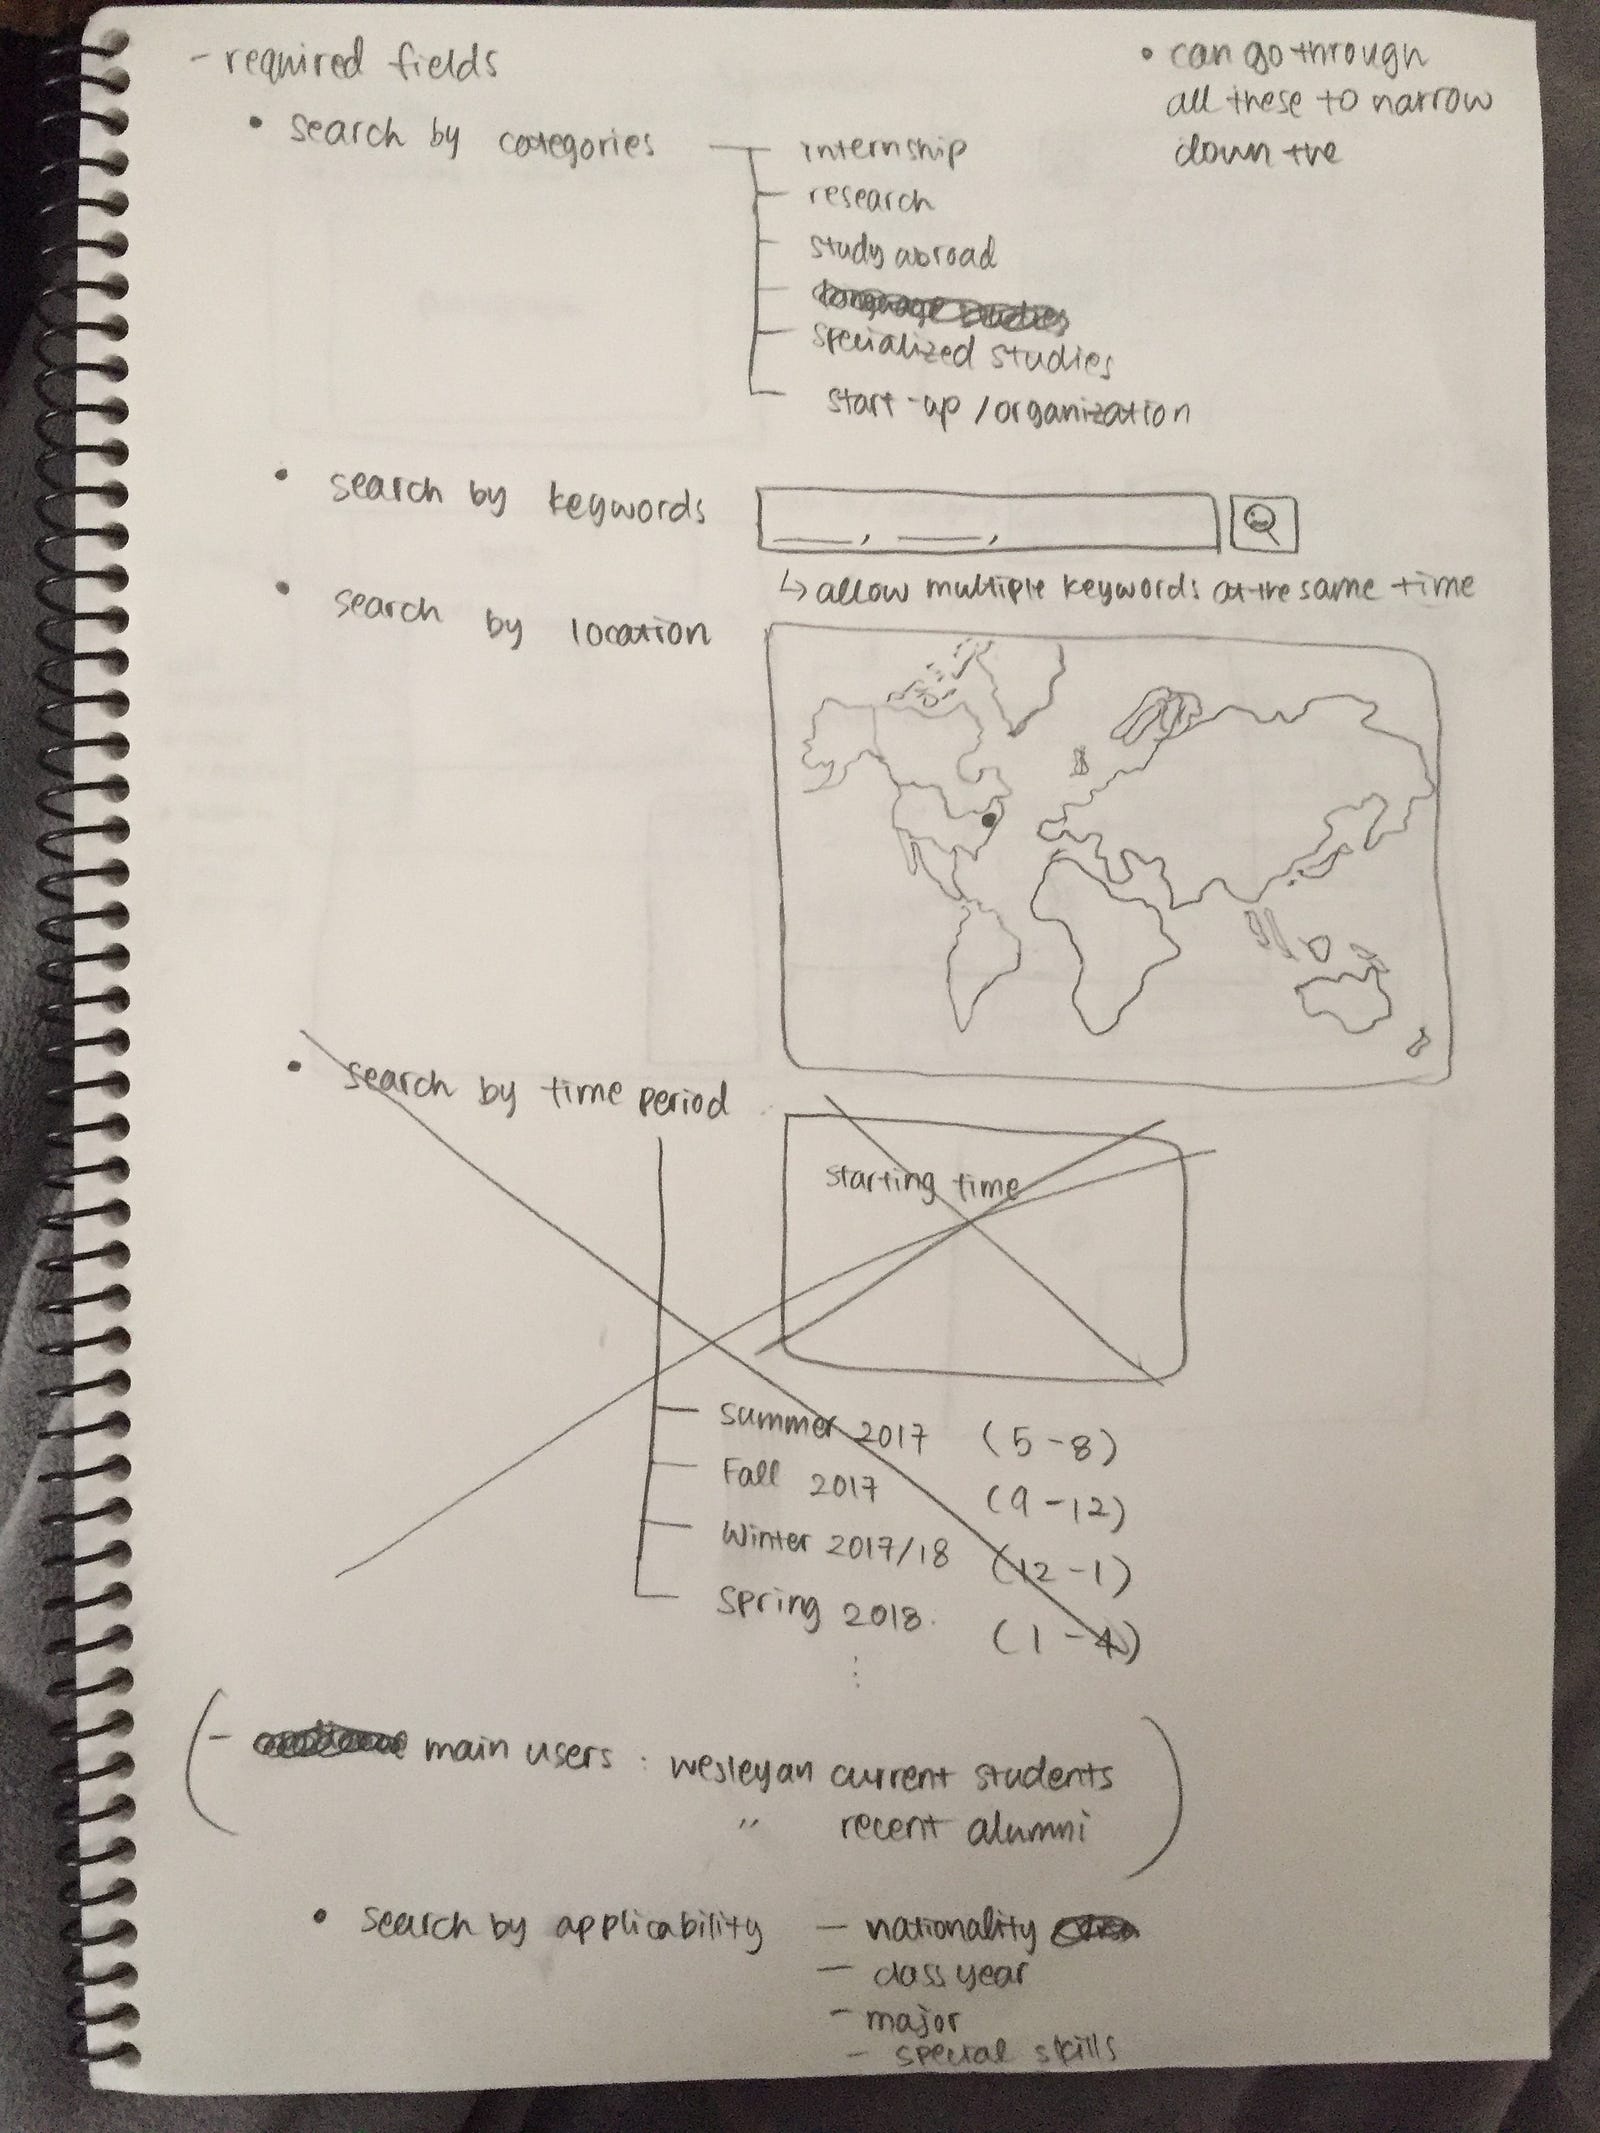 - required fields
• can go through
all these to narrow
down the
• search by categories
internship
research
study abroad
language studies
specialized studies
start-up / organization
• search by keywords
___, ___,
↳ allow multiple keywords at the same time
• search by location
• search by time period
starting time
Summer 2017 (5-8)
Fall 2017 (9-12)
Winter 2017/18 (12-1)
Spring 2018. (1-4)
⋮
( - main users : wesleyan current students
" recent alumni )
• search by applicability - nationality
- class year
- major
- special skills